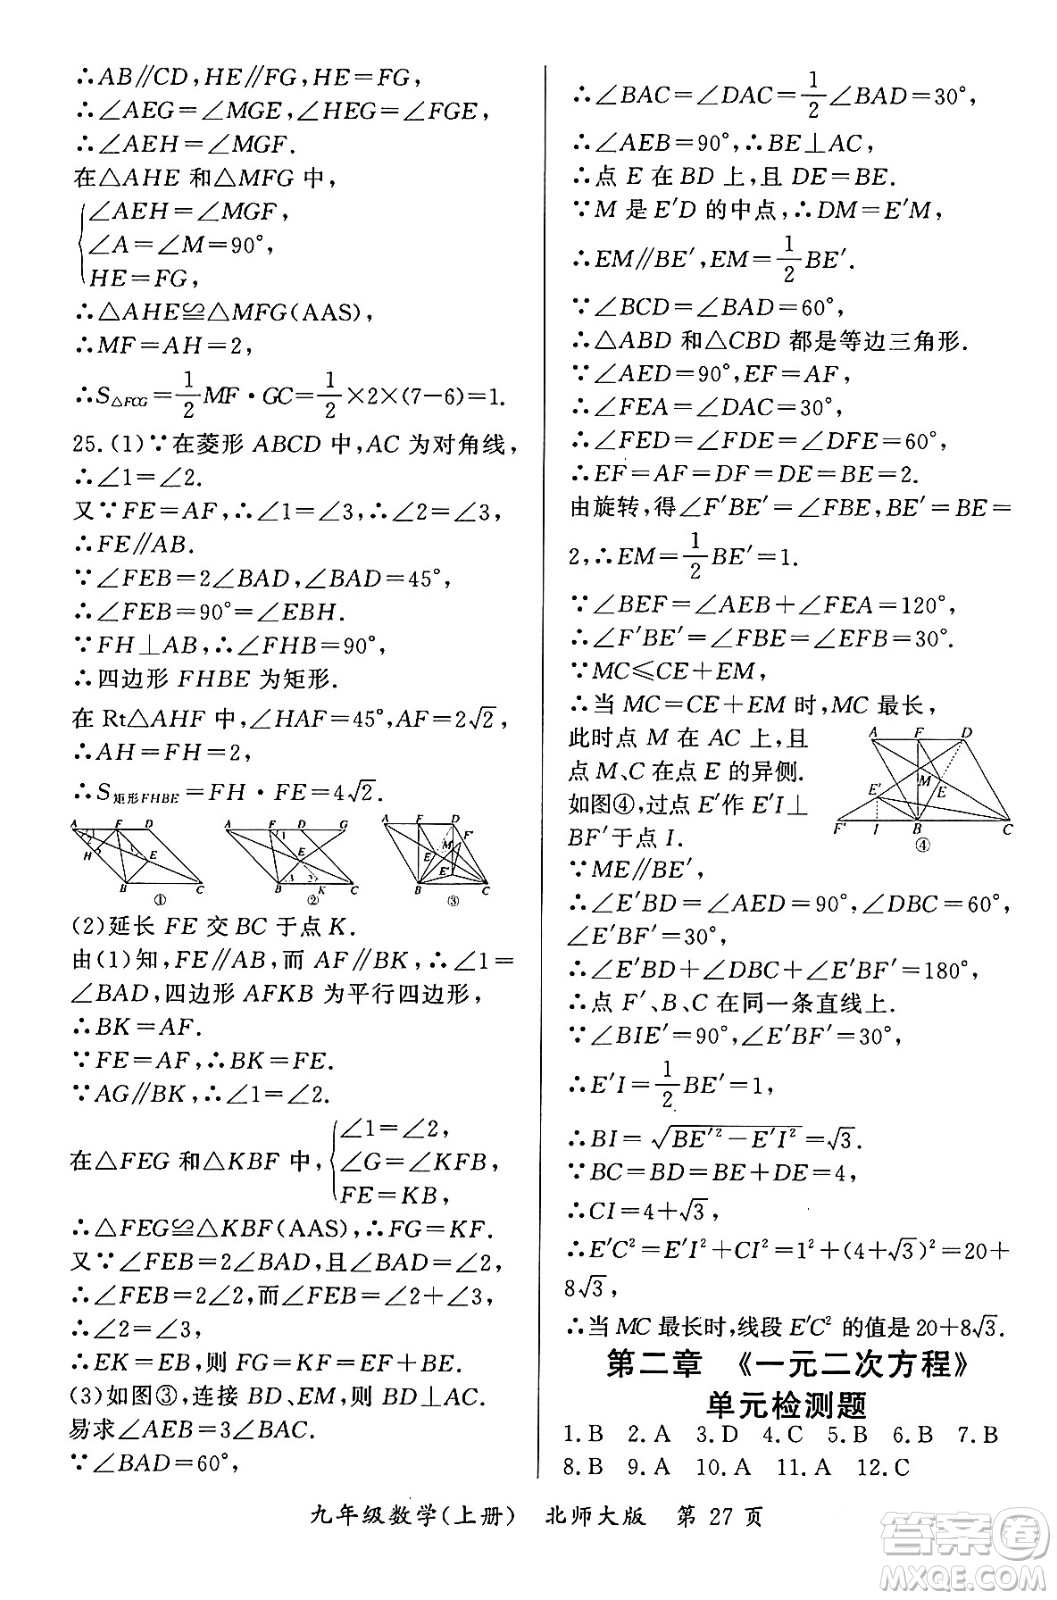 ∴AB∥CD,HE∥FG,HE=FG,
∴∠AEG=∠MGE,∠HEG=∠FGE,
∴∠AEH=∠MGF.
在△AHE 和△MFG 中,
∠AEH=∠MGF,
∠A=∠M=90°,
HE=FG,
∴△AHE≌△MFG(AAS),
∴MF=AH=2,
∴S△FCG=1/2 MF·GC=1/2×2×(7-6)=1.
25.(1)∵在菱形 ABCD 中,AC 为对角线,
∴∠1=∠2.
又∵FE=AF,∴∠1=∠3,∴∠2=∠3,
∴FE∥AB.
∵∠FEB=2∠BAD,∠BAD=45°,
∴∠FEB=90°=∠EBH.
∵FH⊥AB,∴∠FHB=90°,
∴四边形 FHBE 为矩形.
在 Rt△AHF 中,∠HAF=45°,AF=2√2,
∴AH=FH=2,
∴S矩形FHBE=FH·FE=4√2.
① ② ③
(2)延长 FE 交 BC 于点 K.
由(1)知,FE∥AB,而 AF∥BK,∴∠1=
∠BAD,四边形 AFKB 为平行四边形,
∴BK=AF.
∵FE=AF,∴BK=FE.
∵AG∥BK,∴∠1=∠2.
在△FEG 和△KBF 中,
∠1=∠2,
∠G=∠KFB,
FE=KB,
∴△FEG≌△KBF(AAS),∴FG=KF.
又∵∠FEB=2∠BAD,且∠BAD=∠2,
∴∠FEB=2∠2,而∠FEB=∠2+∠3,
∴∠2=∠3,
∴EK=EB,则 FG=KF=EF+EB.
(3)如图③,连接 BD、EM,则 BD⊥AC.
易求∠AEB=3∠BAC.
∵∠BAD=60°,
∴∠BAC=∠DAC=1/2∠BAD=30°,
∴∠AEB=90°,∴BE⊥AC,
∴点 E 在 BD 上,且 DE=BE.
∵M 是 E′D 的中点,∴DM=E′M,
∴EM∥BE′,EM=1/2 BE′.
∵∠BCD=∠BAD=60°,
∴△ABD 和△CBD 都是等边三角形.
∵∠AED=90°,EF=AF,
∴∠FEA=∠DAC=30°,
∴∠FED=∠EDF=∠DFE=60°,
∴EF=AF=DF=DE=BE=2.
由旋转,得∠F′BE′=∠FBE,BE′=BE=
2,∴EM=1/2 BE′=1.
∵∠BEF=∠AEB+∠FEA=120°,
∴∠F′BE′=∠FBE=∠EFB=30°.
∵MC≤CE+EM,
∴当 MC=CE+EM 时,MC 最长,
此时点 M 在 AC 上,且
点 M、C 在点 E 的异侧.
如图④,过点 E′作 E′I⊥
BF′于点 I.
A F D
M E
E′
F′ I B C
④
∵ME∥BE′,
∴∠E′BD=∠AED=90°,∠DBC=60°,
∠E′BF′=30°,
∴∠E′BD+∠DBC+∠E′BF′=180°,
∴点 F′、B、C 在同一条直线上.
∵∠BIE′=90°,∠E′BF′=30°,
∴E′I=1/2 BE′=1,
∴BI=√(BE′²-E′I²)=√3.
∵BC=BD=BE+DE=4,
∴CI=4+√3,
∴E′C²=E′I²+CI²=1²+(4+√3)²=20+
8√3,
∴当 MC 最长时,线段 E′C² 的值是 20+8√3.
第二章 《一元二次方程》
单元检测题
1.B 2.A 3.D 4.C 5.B 6.B 7.B
8.B 9.A 10.A 11.A 12.C
九年级数学(上册) 北师大版 第 27 页
答案圈
MXQE.COM